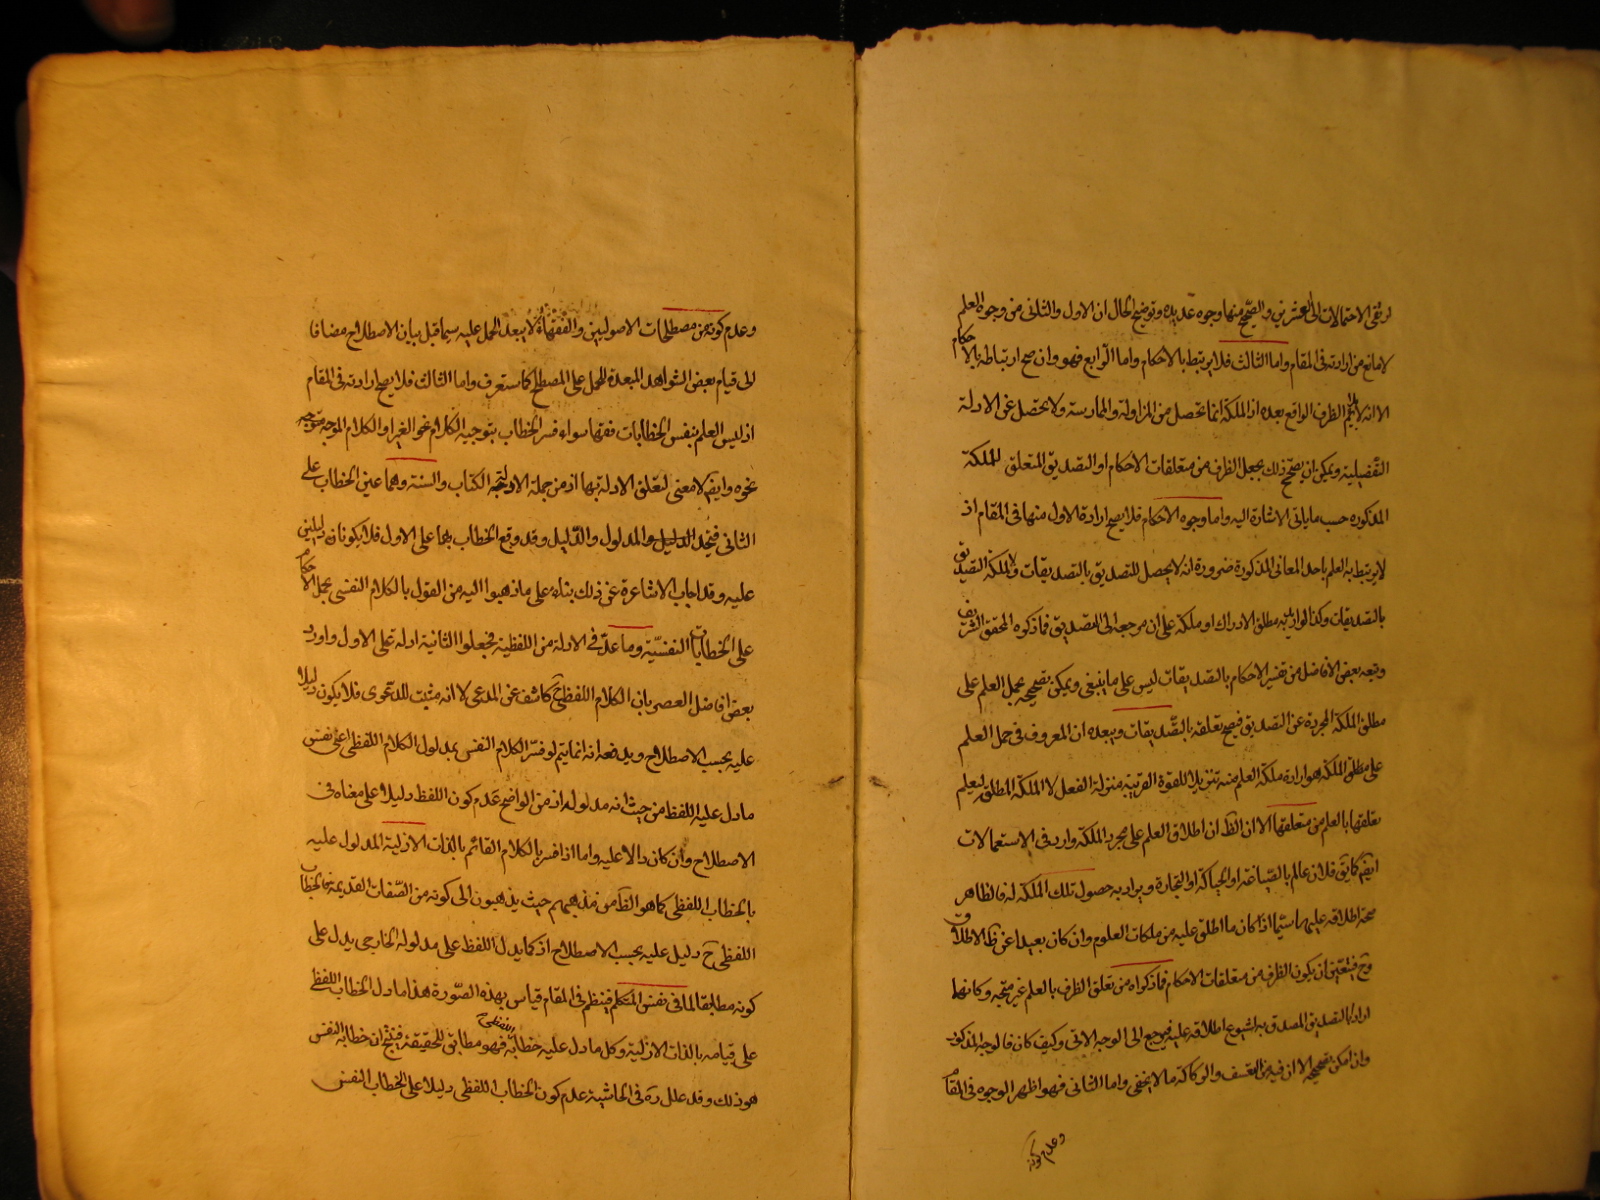 يرتقى الاحتمالات الى العشرين والصحيح منها وجوه عديدة وتوضيح الحال ان الاول والثانى من وجوه العلم
لا مانع من ارادته فى المقام واما الثالث فلا يرتبط بالاحكام واما الرابع فهو وان صح ارتباطه بالاحكام
الا انه لا يلايم الظرف الواقع بعده اذ الملكة انما تحصل من المزاولة والممارسة ولا يحصل عن الادلة
التفصيلية ويمكن ان يصحح ذلك بجعل الظرف من متعلقات الاحكام او التصديق المتعلق للملكة
المذكورة حسب ما ياتى الاشارة اليه واما وجوه الاحكام فلا يصح ارادة الاول منها فى المقام اذ
لا يرتبط به العلم باحد المعانى المذكورة ضرورة انه لا يحصل التصديق بالتصديقات ولا ملكة التصديق
بالتصديقات وكذا لو اريد به مطلق الادراك او ملكة على ان مرجعه الى التصديق فما ذكره المحقق الشريف
وتبعه بعض الافاضل من تفسير الاحكام بالتصديقات ليس على ما ينبغى ويمكن تصحيحه بحمل العلم على
مطلق الملكة المجردة عن التصديق فيصح تعلقه بالتصديقات ويبعده ان المعروف فى حمل العلم
على مطلق الملكة هو ارادة ملكة العلم منه تنزيلا للقوة القريبة منزلة الفعل لا الملكة المطلق ليعلم
تعلقها بالعلم من متعلقها الا ان الظ ان اطلاق العلم على مجرد الملكة وارد فى الاستعمالات
ايضا كما يق فلان عالم بالصياغة او الحياكة او التجارة ويراد به حصول تلك الملكة له فالظاهر
صحة اطلاقه عليها سيما اذا كان ما اطلق عليه من ملكات العلوم وان كان بعيدا عن ظ الاطلاق
وح فيتعين ان يكون الظرف من متعلقات الاحكام فما ذكراه من تعلق الظرف بالعلم غير متجه وكانهما
ارادا بالتصديق المصدق به لشيوع اطلاقه عليه فيرجع الى الوجه الاتى وكيف كان فالوجه المذكور
وان امكن تصحيحه الا ان فيه من التعسف والركاكة ما لا يخفى واما الثانى فهو اظهر الوجوه فى المقام
وعدم كونه
وعدم كونه من مصطلحات الاصوليين والفقهاء لا يبعد الحمل عليه سيما قبل بيان الاصطلاح مضافا
الى قيام بعض الشواهد المبعدة للحمل على المصطلح كما ستعرف واما الثالث فلا يصح ارادته فى المقام
اذ ليس العلم بنفس الخطابات فقها سواء فسر الخطاب بتوجيه الكلام نحو الغير او الكلام الموجه
نحوه وايضا لا معنى لتعلق الادلة بها اذ من جملة الادلة الكتاب والسنة وهما عين الخطاب على
الثانى فيتحد المدلول والدليل وقد وقع الخطاب بهما على الاول فلا يكونان دليلين
عليه وقد اجاب الاشاعرة عن ذلك بناء على ما ذهبوا اليه من القول بالكلام النفسى بحمل الاحكام
على الخطابات النفسية وما عد فى الادلة من اللفظية فجعلوا الثانية ادلة على الاول واورد
بعض افاضل العصر بان الكلام اللفظى ح كاشف عن المدعى لا انه مثبت للدعوى فلا يكون دليلا
عليه بحسب الاصطلاح ويدفعه انه انما يتم لو فسر الكلام النفسى بمدلول الكلام اللفظى اعنى نفس
ما دل عليه اللفظ من حيث انه مدلوله اذ من الواضح عدم كون اللفظ دليلا على معناه فى
الاصطلاح وان كان دالا عليه واما اذا فسر بالكلام القائم بالذات الازلية المدلول عليه
بالخطاب اللفظى كما هو الظ من مذهبهم حيث يذهبون الى كونه من الصفات القديمة فالخطاب
اللفظى ح دليل عليه بحسب الاصطلاح اذ كما يدل اللفظ على مدلوله الخارجى يدل على
كونه مطابقا لما فى نفس المتكلم فينظم فى المقام قياس بهذه الصورة هذا ما دل الخطاب اللفظى
على قيامه بالذات الازلية وكل ما دل عليه خطابه اللفظى فهو مطابق للحقيقة فينتج ان خطابه النفسى
هو ذلك وقد علل ره فى الحاشية عدم كون الخطاب اللفظى دليلا على الخطاب النفسى